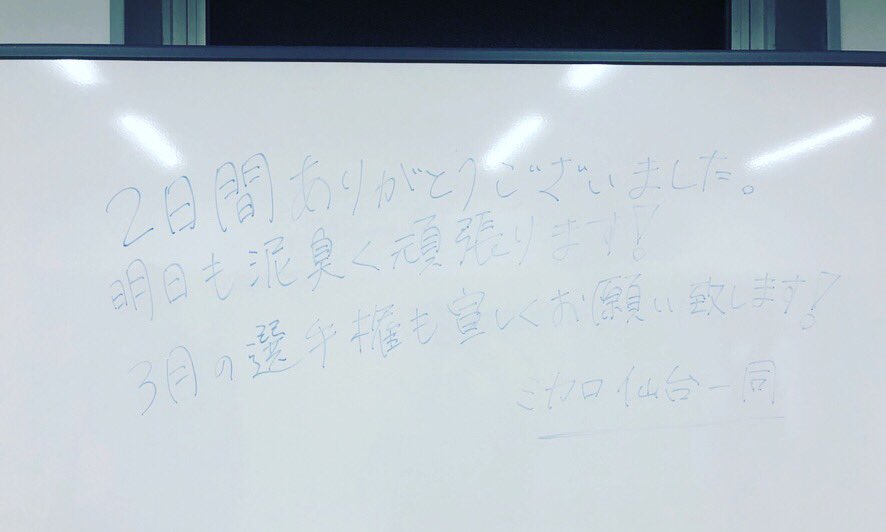 2日間ありがとうございました。
明日も泥臭く頑張ります!
3月の選手権も宜しくお願い致します!
ミカロ仙台一同